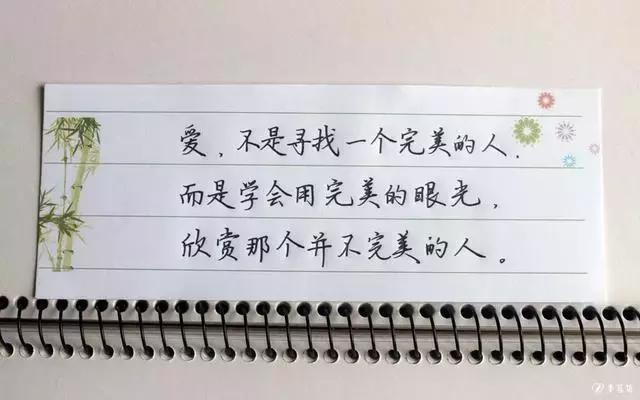 爱，不是寻找一个完美的人，
而是学会用完美的眼光，
欣赏那个并不完美的人。